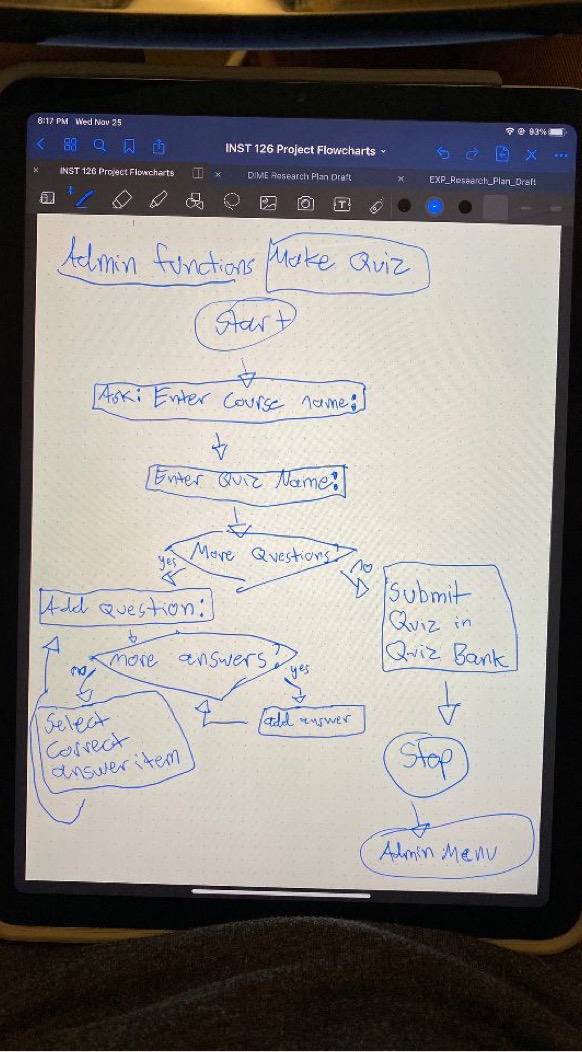 6:17 PM Wed Nov 25
93%
INST 126 Project Flowcharts
INST 126 Project Flowcharts
DIME Research Plan Draft
EXP_Research_Plan_Draft
Admin functions Make Quiz
Start
Ask: Enter Course name:
Enter Quiz Name:
More Questions?
yes
no
Add Question:
Submit
Quiz in
Quiz Bank
more answers?
no
yes
Select
correct
answer item
add answer
Stop
Admin Menu